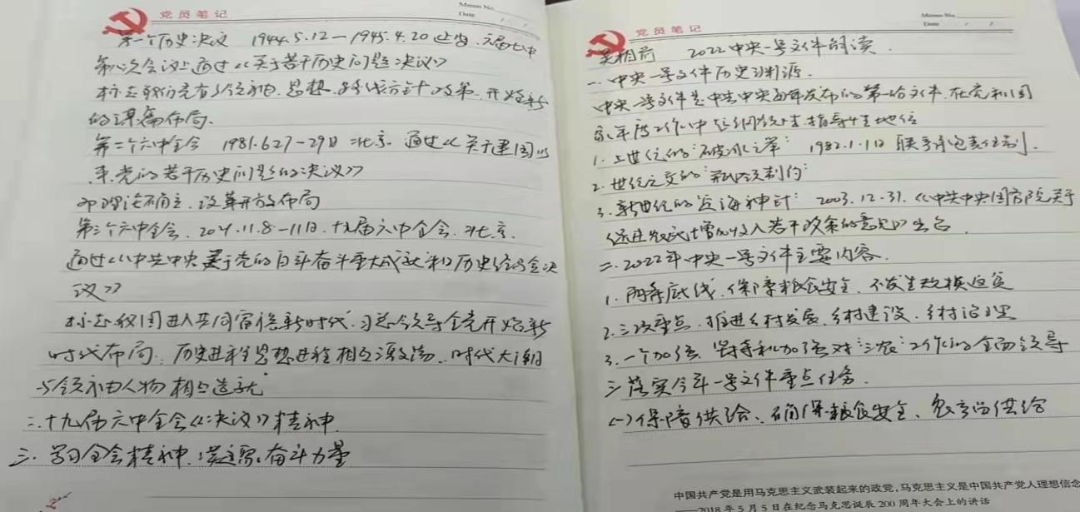 党员笔记
Memo No.
Date
第一个历史决议 1944.5.12—1945.4.20 延安 六届七中
第八次会议上通过《关于若干历史问题决议》
标志我们党有了领袖、思想、路线方针政策、开始新
的谋篇布局.
第二个六中全会 1981.6.27-29日 北京 通过《关于建国以
来党的若干历史问题的决议》
邓理论确立、改革开放布局
第三个六中全会、2021.11.8-11日、十九届六中全会、北京.
通过《中共中央关于党的百年奋斗重大成就和历史经验会决
议》
标志我国进入共同富裕新时代、习总领导全党开始新
时代布局、历史进程思想进程相互激荡、时代大潮
与领袖人物相互造就
二.十九届六中全会《决议》精神.
三、学习全会精神、奋斗力量
党员笔记
Memo No.
Date
吴相前 2022中央一号文件解读.
一.中央一号文件历史溯源.
中央一号文件是中共中央每年发布的第一份文件、在党和国
家年度工作中纲领性、指导性地位
1.上世纪的"破冰之举" 1982.1.1日 联产承包责任制.
2.世纪之交的
3.新世纪的定海神针: 2003.12.31.《中共中央国务院关于
促进农民增加收入若干政策的意见》出台.
二.2022年中央一号文件主要内容.
1.两条底线、保障粮食安全、不发生规模返贫
2.三项重点、推进乡村发展、乡村建设、乡村治理
3.一个加强 坚持和加强对"三农"工作的全面领导
三落实今年一号文件重点任务.
(一)保障供给、确保粮食安全、农产品供给
中国共产党是用马克思主义武装起来的政党，马克思主义是中国共产党人理想信念
——2018年5月5日在纪念马克思诞辰200周年大会上的讲话